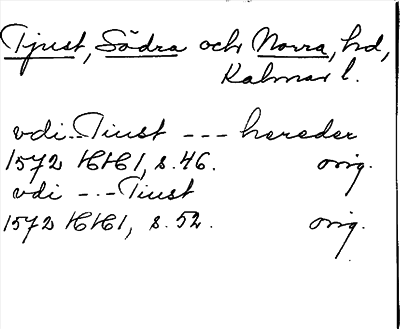 Tjust, Södra och Norra, hd,
Kalmar l.
vdi - Tiust --- hereder
1572 HH1, s. 46. orig.
vdi - - - Tiust
1572 HH1, s. 52. orig.